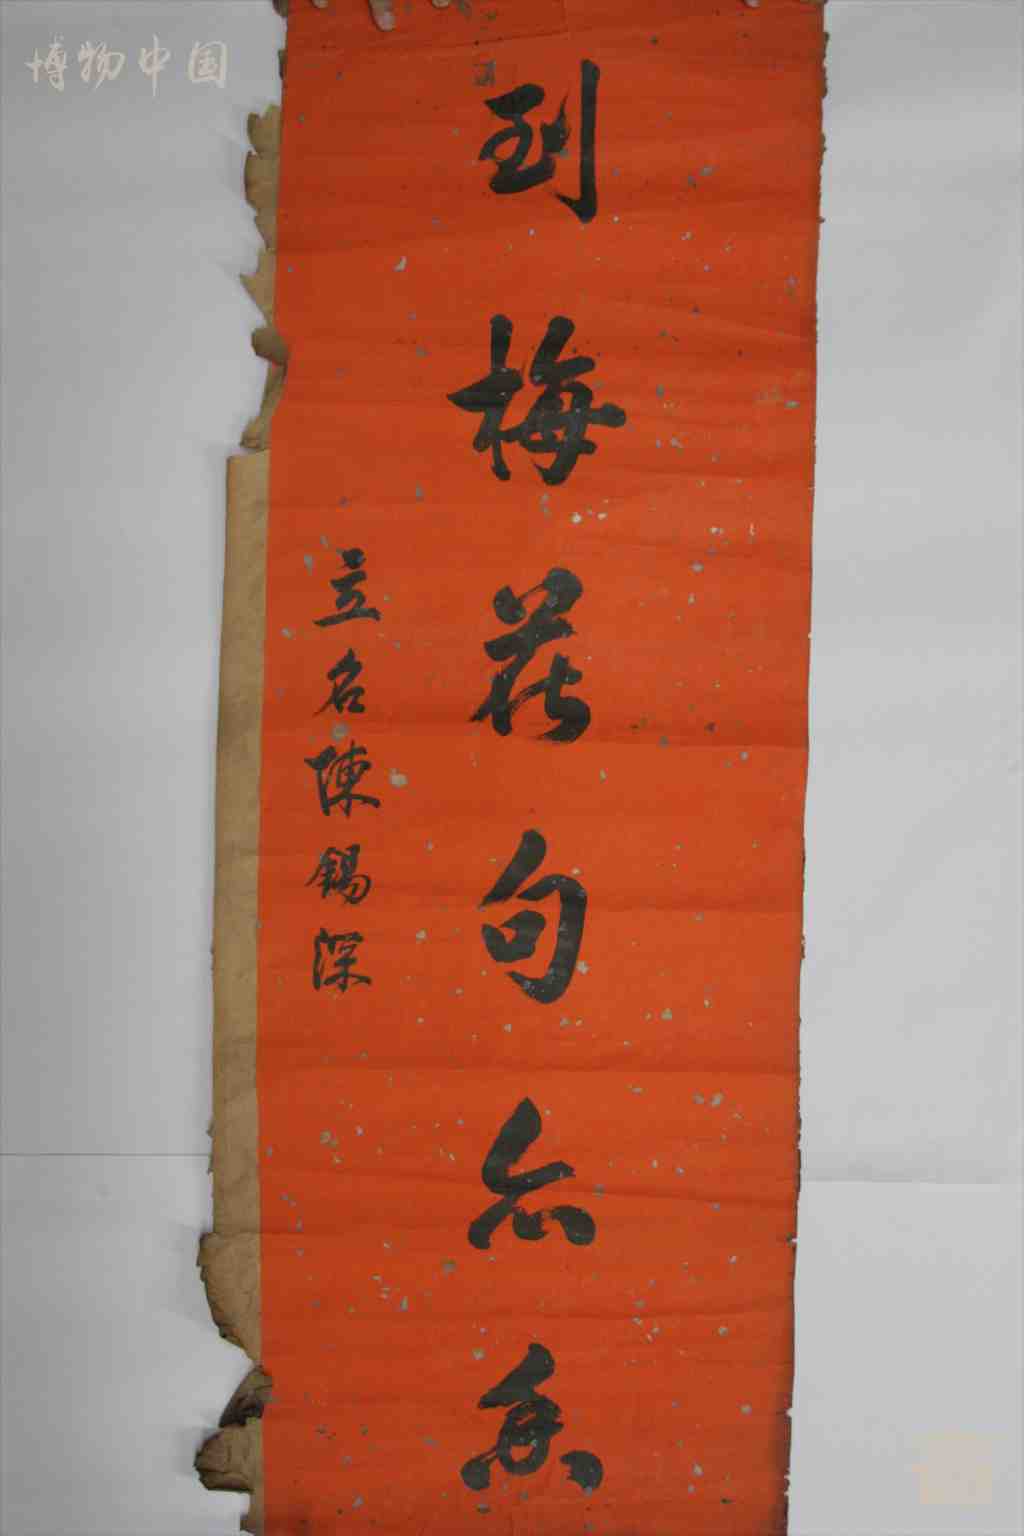 博物中国
到梅花句亦香
立名陳錫深